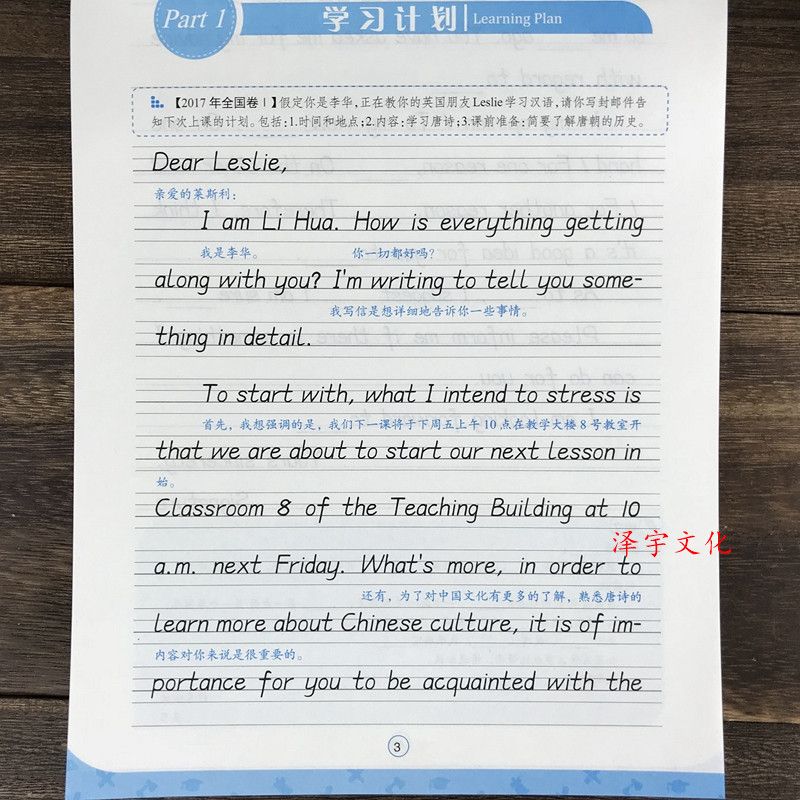 Part 1 学习计划 Learning Plan
【2017年全国卷Ⅰ】假定你是李华,正在教你的英国朋友Leslie学习汉语,请你写封邮件告
知下次上课的计划。包括:1.时间和地点;2.内容:学习唐诗;3.课前准备:简要了解唐朝的历史。
Dear Leslie,
亲爱的莱斯利：
I am Li Hua. How is everything getting
我是李华。 你一切都好吗？
along with you? I'm writing to tell you some-
我写信是想详细地告诉你一些事情。
thing in detail.
To start with, what I intend to stress is
首先，我想强调的是，我们下一课将于下周五上午10点在教学大楼8号教室开
that we are about to start our next lesson in
始。
Classroom 8 of the Teaching Building at 10
泽宇文化
a.m. next Friday. What's more, in order to
还有，为了对中国文化有更多的了解，熟悉唐诗的
learn more about Chinese culture, it is of im-
内容对你来说是很重要的。
portance for you to be acquainted with the
3